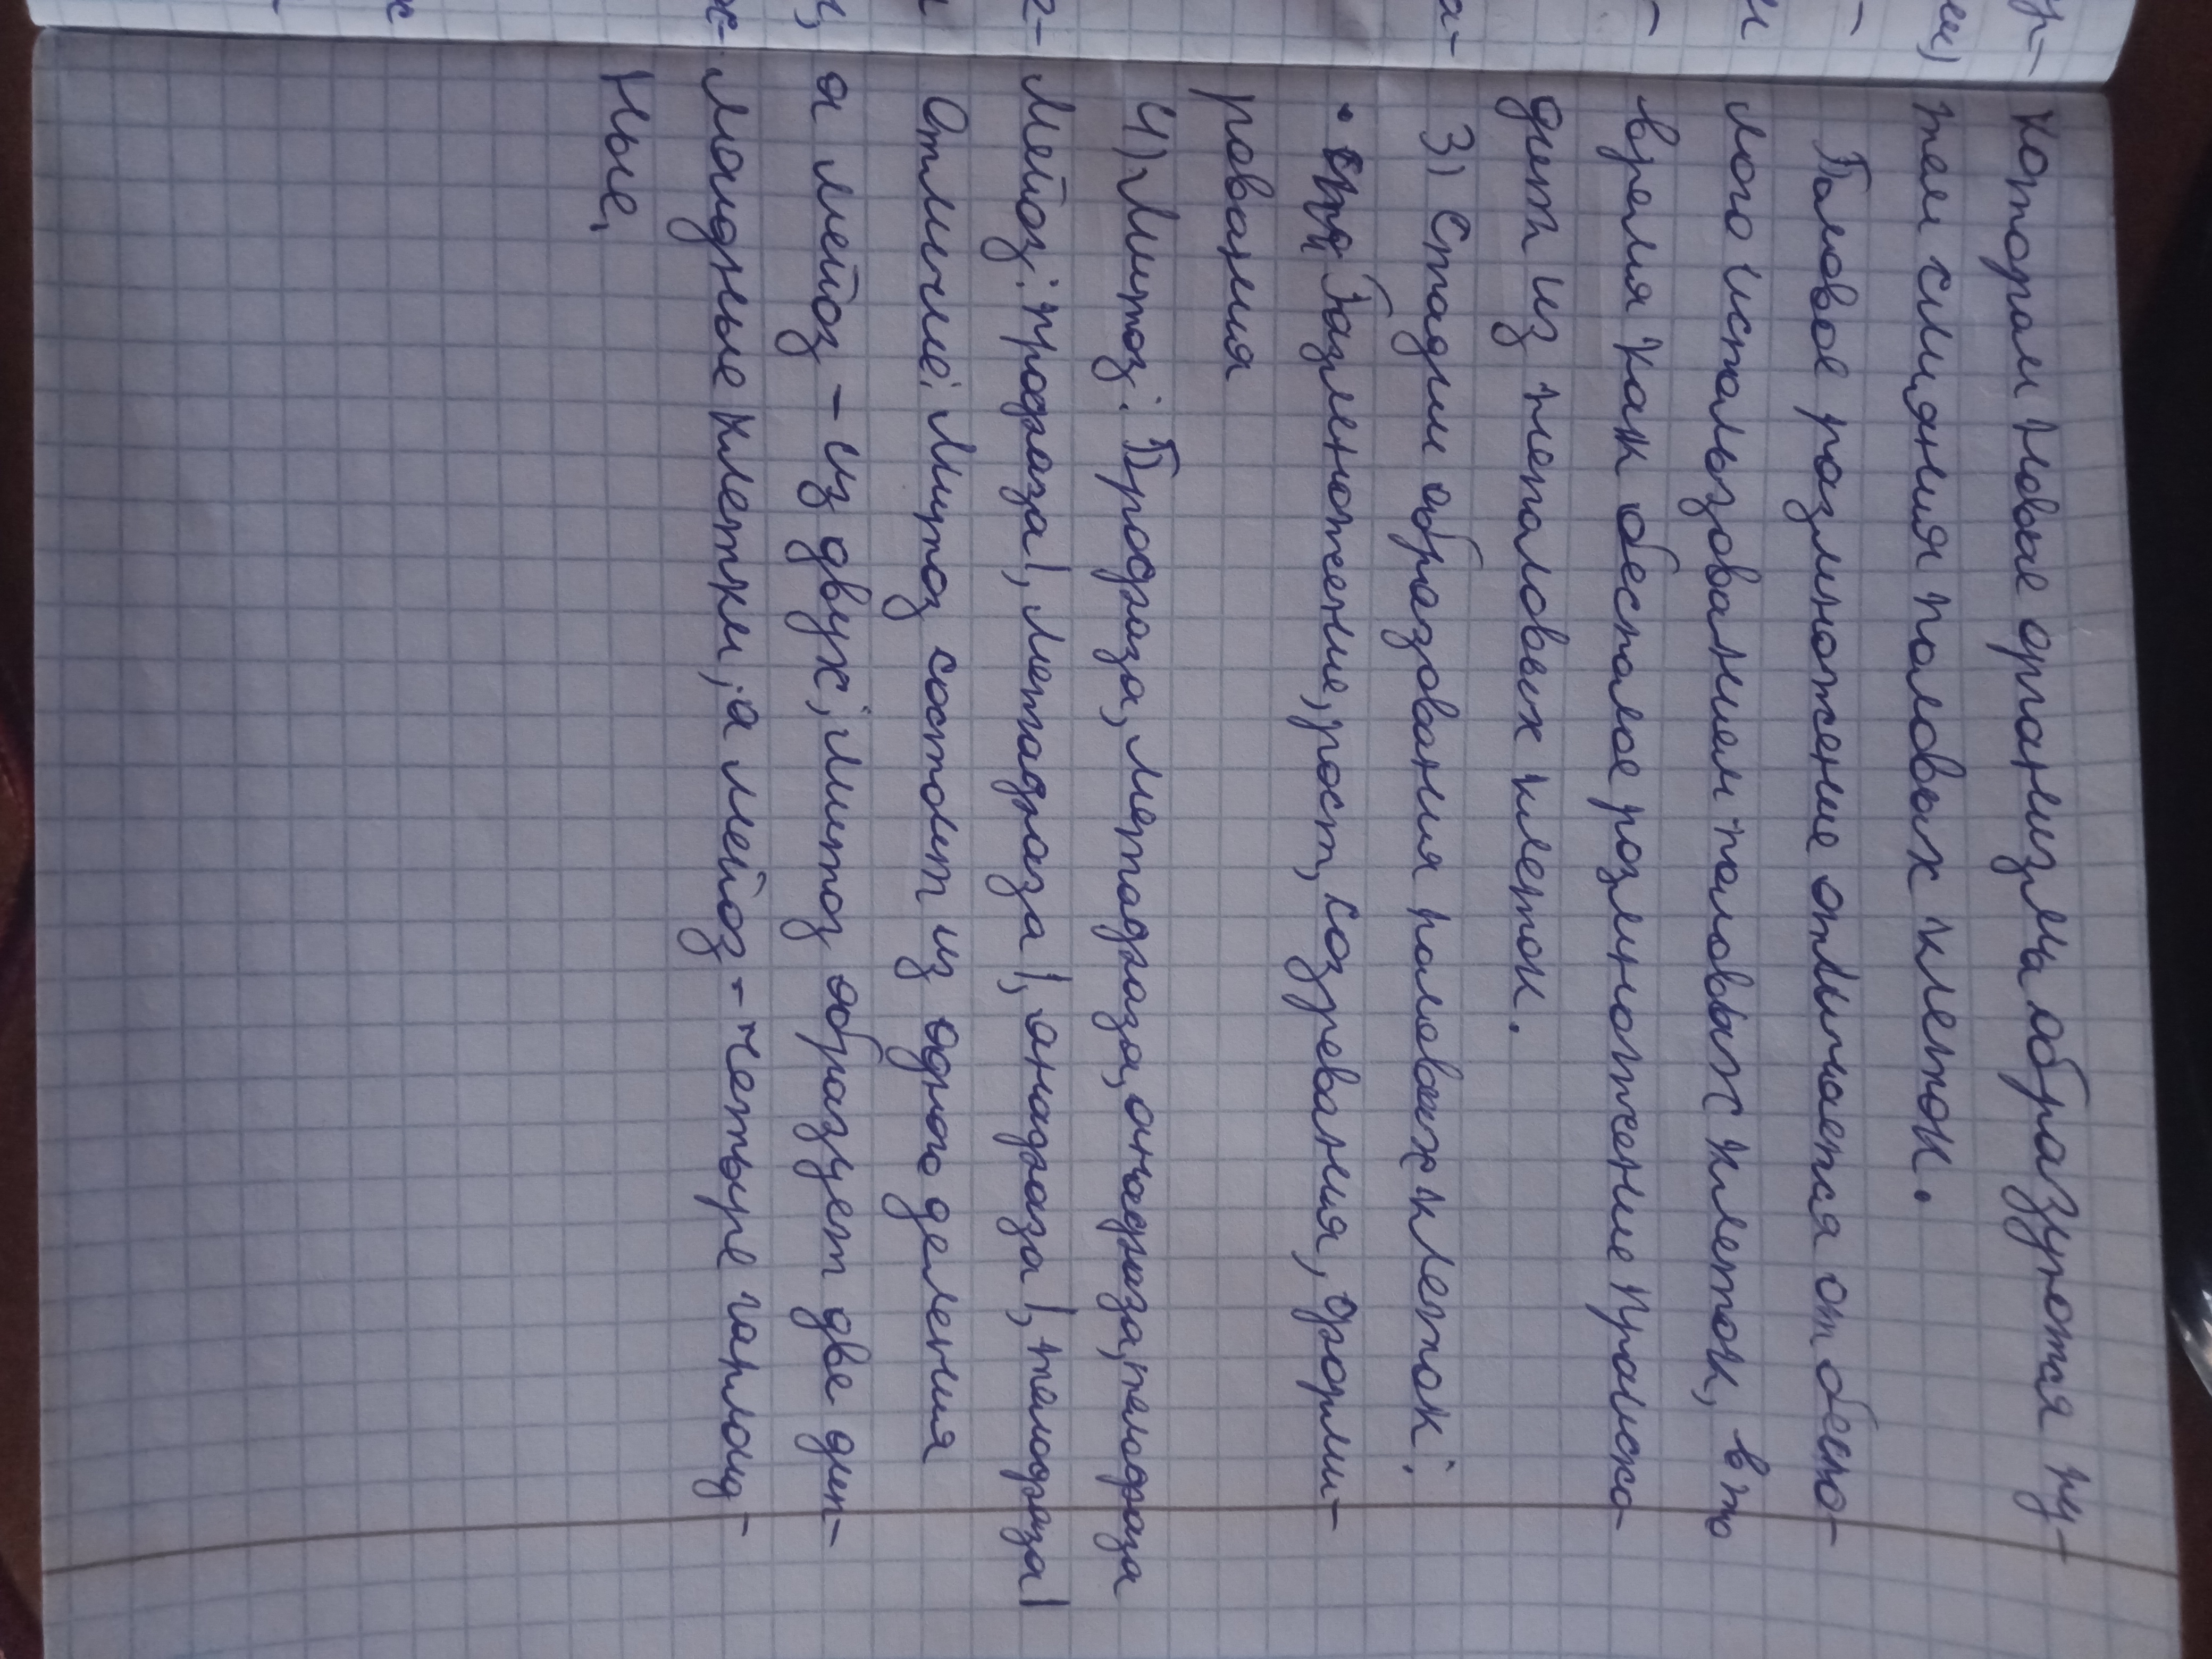 котором новые организмы образуются пу-
тем слияния половых клеток.
Половое размножение отличается от бепо-
лого использованием половых клеток, в то
время как бесполое размножение происхо-
дит из неполовых клеток.
3) Стадии образования половых клеток:
• Размножение, рост, созревания, форми-
рования
4) Митоз: Профаза, метафаза, анафаза, телофаза
Мейоз: профаза1, метафаза1, анафаза1, телофаза1
Отличие: Митоз состоит из одного деления
а мейоз - из двух; митоз образует две дип-
лоидные клетки, а мейоз - четыре гаплоид-
ные.